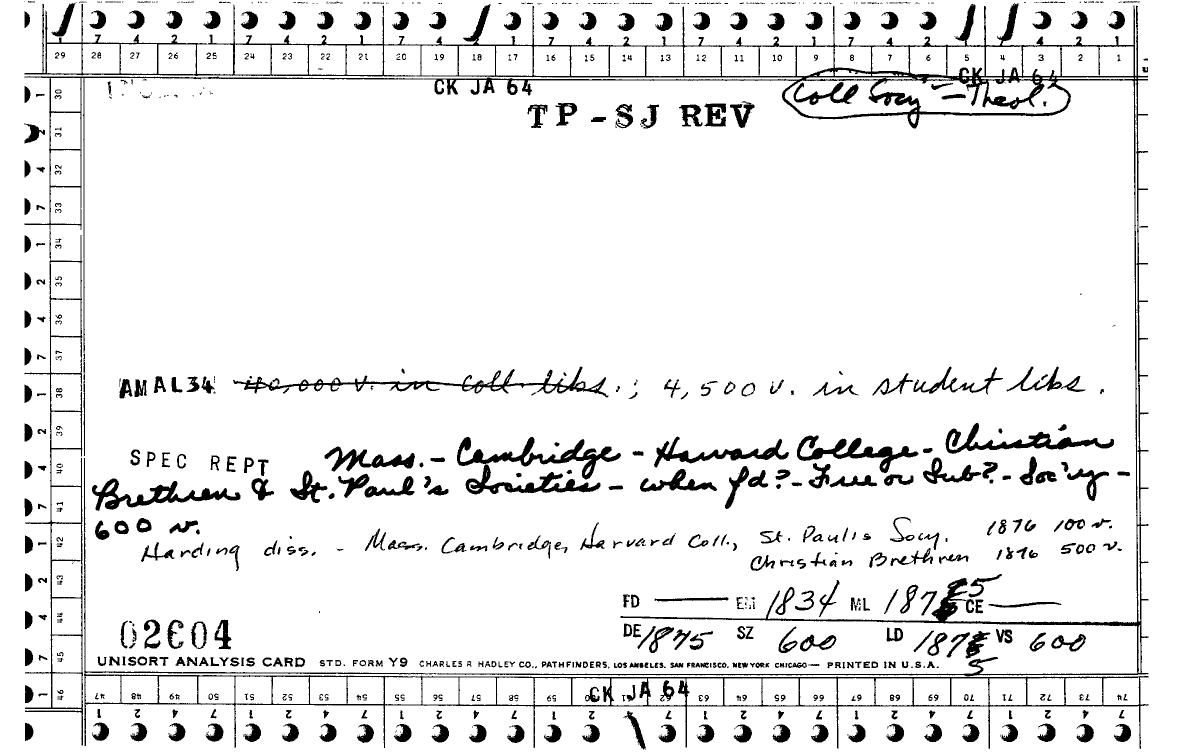 1 7 4 2 1 7 4 2 1 7 4 2 1 7 4 2 1 7 4 2 1
29 28 27 26 25 24 23 22 21 20 19 18 17 16 15 14 13 12 11 10 9 8 7 6 5 4 3 2 1
CK JA 64
CK JA 64
Coll Socy - Theol.
TP-SJ REV
1 30
2 31
4 32
7 33
1 34
2 35
4 36
7 37
AMAL34 40,000 v. in coll. libs.; 4,500 v. in student libs.
1 38
2 39
SPEC REPT Mass. - Cambridge - Harvard College - Christian
4 40
Brethren & St. Paul's Societies - when fd? - Free or Sub? - Soc'y -
7 41
600 v.
Harding diss. - Mass. Cambridge, Harvard Coll., St. Paul's Socy. 1876 100 v.
1 42
Christian Brethren 1876 500 v.
2 43
FD — EM 1834 ML 1875 CE —
4 44
02604
DE 1875 SZ 600 LD 1875 VS 600
7 45
UNISORT ANALYSIS CARD STD. FORM Y9 CHARLES R HADLEY CO., PATHFINDERS, LOS ANGELES, SAN FRANCISCO, NEW YORK CHICAGO — PRINTED IN U.S.A.
1 46
CK JA 64
47 48 49 50 51 52 53 54 55 56 57 58 59 60 61 62 63 64 65 66 67 68 69 70 71 72 73 74
1 2 4 7 1 2 4 7 1 2 4 7 1 2 4 7 1 2 4 7 1 2 4 7